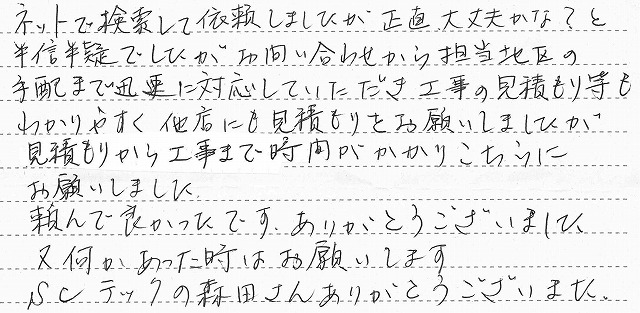 ネットで検索して依頼しましたが正直大丈夫かな?と
半信半疑でしたがお問い合わせから担当地区の
手配まで迅速に対応していただき工事の見積もり等も
わかりやすく他店にも見積もりをお願いしましたが
見積もりから工事まで時間がかかりこちらに
お願いしました
頼んで良かったです.ありがとうございました
又何かあった時はお願いします
SCテックの森田さんありがとうございました.